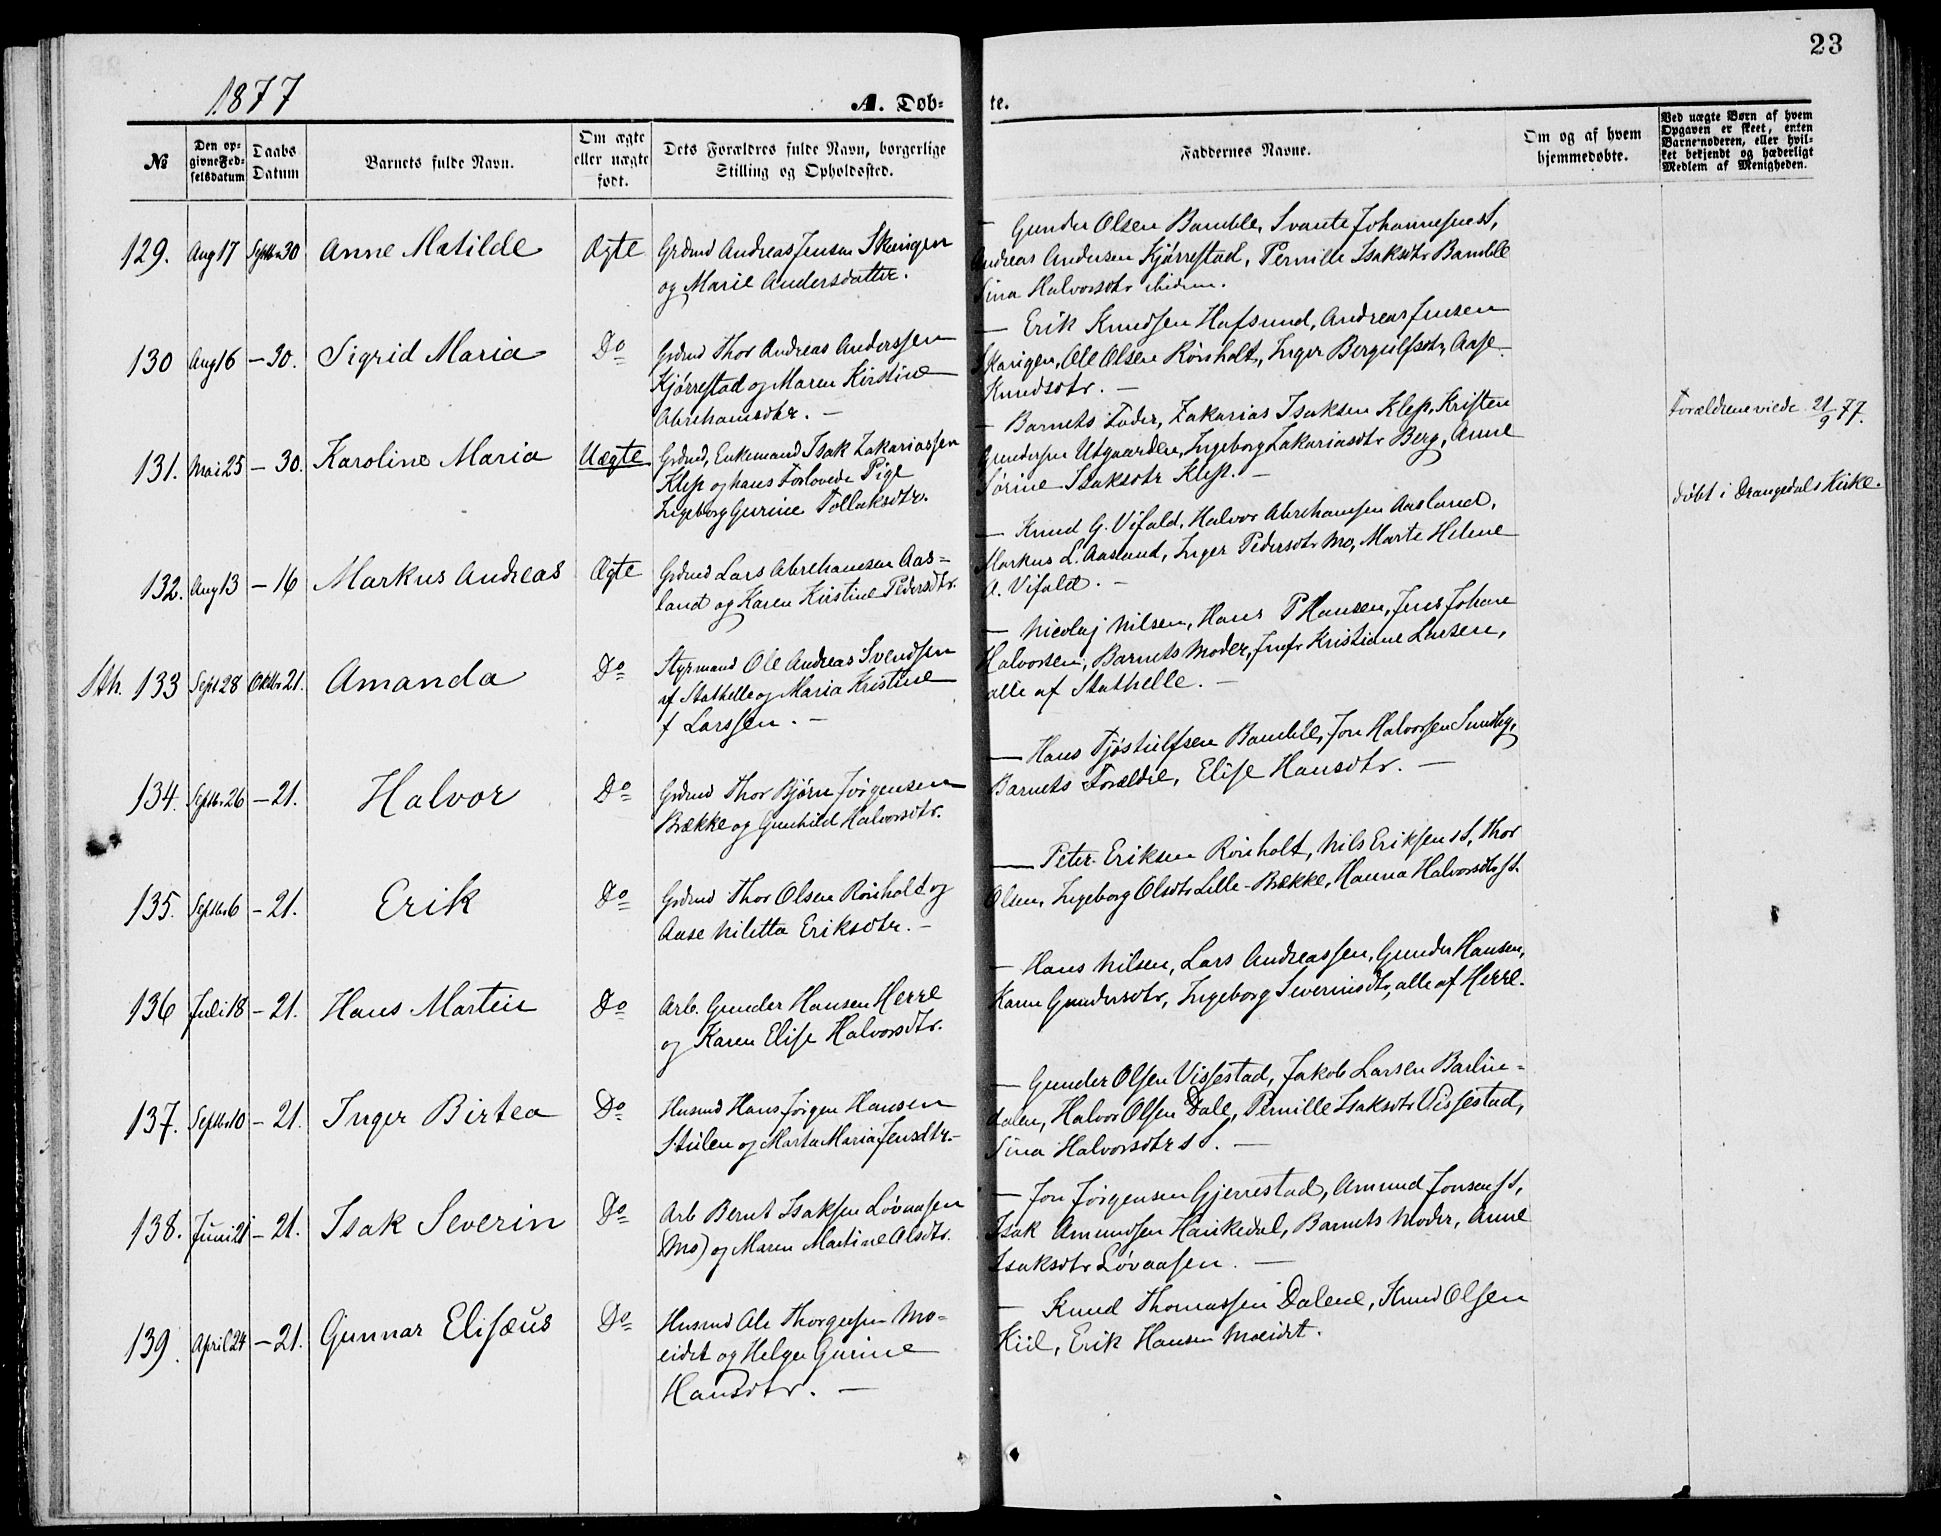 23
1877
A. Døb-
te.
No
Den op-
givne Fød-
selsdatum
Daabs
Datum
Barnets fulde Navn.
Om ægte
eller uægte
født.
Dets Forældres fulde Navn, borgerlige
Stilling og Opholdssted.
Faddernes Navne.
Om og af hvem
hjemmedøbte.
Ved uægte Børn af hvem
Opgaven er skeet, enten
Barnemoderen, eller hvil-
ket bekjendt og hæderligt
Medlem af Menigheden.
129. Aug 17 Septbr 30 Anne Matilde Ægte Grdmd Andreas Jensen Skerigen
og Marie Andersdatter.
— Gunder Olsen Bamble, Svante Johannesen sS,
Andreas Andersen Kjørrestad, Pernille Isaksdtr Bamble
Sina Halvorsdtr ibidem.
130 Aug 16 – 30. Sigrid Maria Do Grdmd Thor Andreas Anderssen
Kjørrestad og Maren Kirstine
Abrehamsdtr. —
— Erik Knudsen Hafsund, Andreas Jensen
Skarigen, Ole Olsen Rönholt, Inger Bergulfsdtr, Aase
Knudsdtr. —
131. Mai 25 – 30. Karoline Maria Uægte Grdmd, Enkemand Isak Zakariassen
Klep og hans Forlovede Pige
Ingeborg Gurine Tollaksdtr.
— Barnets Fader, Zakarias Isaksen Klep, Kristen
Gundersen Utgaarden, Ingeborg Zakariasdtr Berg, Anne
Sörine Isaksdtr Klep. —
Forældrene viede 21/9 77.
døbt i Drangedals Kirke.
132. Aug 13 – 16 Markus Andreas Ægte Grdmd Lars Abrehamsen Aas-
land og Karen Kirstine Pedersdtr.
— Knud G. Vifald, Halvor Abrehamsen Aasland,
Markus L. Aasland, Inger Pedersdtr Mo, Marte Helene
A. Vifald. —
Sth. 133 Sept 28 Oktbr 21. Amanda Do Styrmand Ole Andreas Svendsen
af Stathelle og Maria Kristine
f Larssen. —
— Nicolaj Nilsen, Hans P Hansen, Jens Johan
Halvorsen, Barnets Moder, Jmfr Kristiane Larsen,
alle af Stathelle. —
134. Septbr 26 – 21. Halvor Do Grdmd Thor Bjørn Jörgensen
Brække og Gunhild Halvorsdtr.
— Hans Tjöstulfsen Bamble, Jon Halvorsen Sundby,
Barnets Forældre, Elise Hansdtr. —
135. Septbr 6 – 21. Erik Do Grdmd Thor Olsen Rönholt og
Aase Niletta Eriksdtr. —
— Peter Eriksen Rönholt, Nils Eriksen sS, Thor
Olsen, Ingeborg Olsdtr Lille-Brække, Hanna Halvorsdtr sS.
136 Juli 18 – 21. Hans Martin Do Arb. Gunder Hansen Herre
og Karen Elise Halvorsdtr.
— Hans Nilsen, Lars Andreassen, Gunder Hansen,
Karen Gundersdtr, Ingeborg Severinsdtr, alle af Herre.
137. Septbr 10 – 21. Inger Birtea Do Husmd Hans Jörgen Hansen
Stulen og Marta Maria Jensdtr. –
— Gunder Olsen Vissestad, Jakob Larsen Barlin-
dalen, Halvor Olsen Dale, Pernille Isaksdtr Vissestad,
Sina Halvorsdtr sS. —
138. Juni 21 – 21. Isak Severin Do Arb Bernt Isaksen Løvaasen
(Mo) og Maren Martine Olsdtr.
— Jon Jörgensen Gjerrestad, Amund Jonsen sS,
Isak Amundsen Haukedal, Barnets Moder, Anne
Isaksdtr Løvaasen. —
139. April 24 – 21. Gunnar Elisæus Do Husmd Ole Thorgersen Mo-
eidet og Helge Gurine
Hansdtr. —
— Knud Thomassen Dalene, Knud Olsen
Kiil, Erik Hansen Moeidet.